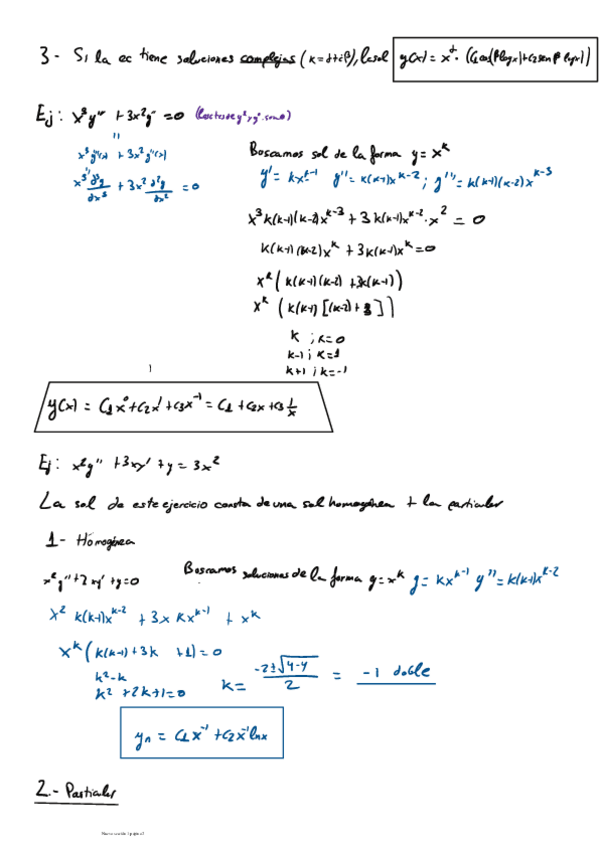 3- Si la ec tiene soluciones complejas (k=α+iβ), la sol y(x) = x^α · (C1 cos(β log x) + C2 sen β log x)
Ej: x³y''' + 3x²y'' = 0
x³y'''(x) + 3x²y''(x)
x³ d³y/dx³ + 3x² d²y/dx² = 0
Buscamos sol de la forma y = x^k
y' = kx^k-1 y'' = k(k-1)x^k-2 ; y''' = k(k-1)(k-2)x^k-3
x³k(k-1)(k-2)x^k-3 + 3k(k-1)x^k-2 · x² = 0
k(k-1)(k-2)x^k + 3k(k-1)x^k = 0
x^k (k(k-1)(k-2) + 3k(k-1))
x^k (k(k-1) [(k-2) + 3])
k ; k=0
k-1 ; k=1
k+1 ; k=-1
y(x) = C1x⁰ + C2x¹ + C3x⁻¹ = C1 + C2x + C3 1/x
Ej: x²y'' + 3xy' + y = 3x²
La sol de este ejercicio consta de una sol homogénea + la particular
1- Homogénea
x²y'' + 2xy' + y = 0
Buscamos soluciones de la forma y = x^k y = kx^k-1 y'' = k(k-1)x^k-2
x² k(k-1)x^k-2 + 3x kx^k-1 + x^k
x^k (k(k-1) + 3k + 1) = 0
k²-k
k² + 2k + 1 = 0
k = (-2±√4-4)/2 = -1 doble
yn = C1x⁻¹ + C2x⁻¹lnx
2.- Particular